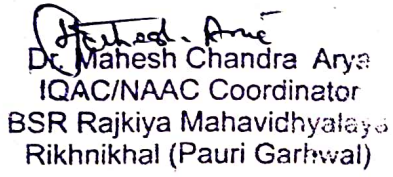 Dr. Mahesh Chandra Arya
IQAC/NAAC Coordinator
BSR Rajkiya Mahavidhyalaya
Rikhnikhal (Pauri Garhwal)